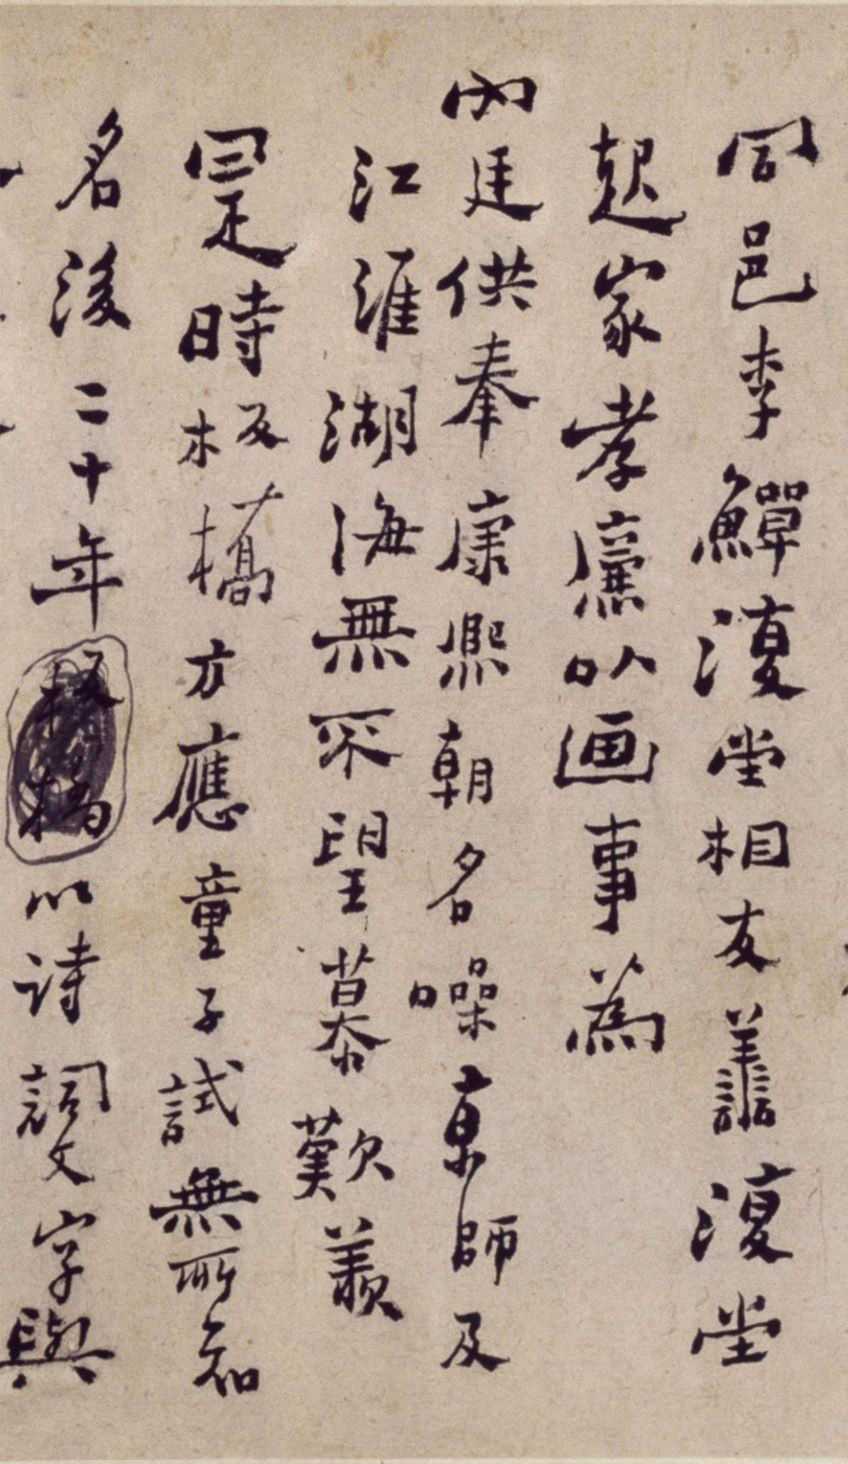 同邑李鱓復堂相友譱復堂
起家孝廉以画事為
內廷供奉康熙朝名噪京師及
江淮湖海無不望慕歎羨
是時板橋方應童子試無所知
名後二十年板橋以詩詞文字與